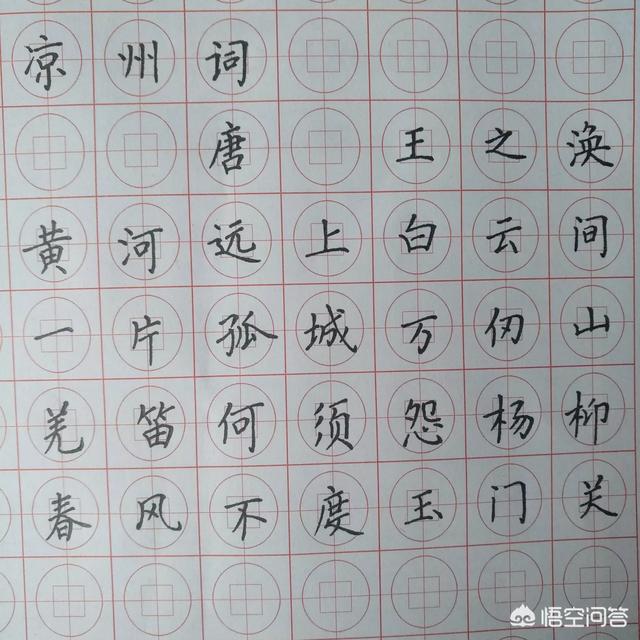 凉州词
唐 王之涣
黄河远上白云间
一片孤城万仞山
羌笛何须怨杨柳
春风不度玉门关
悟空问答